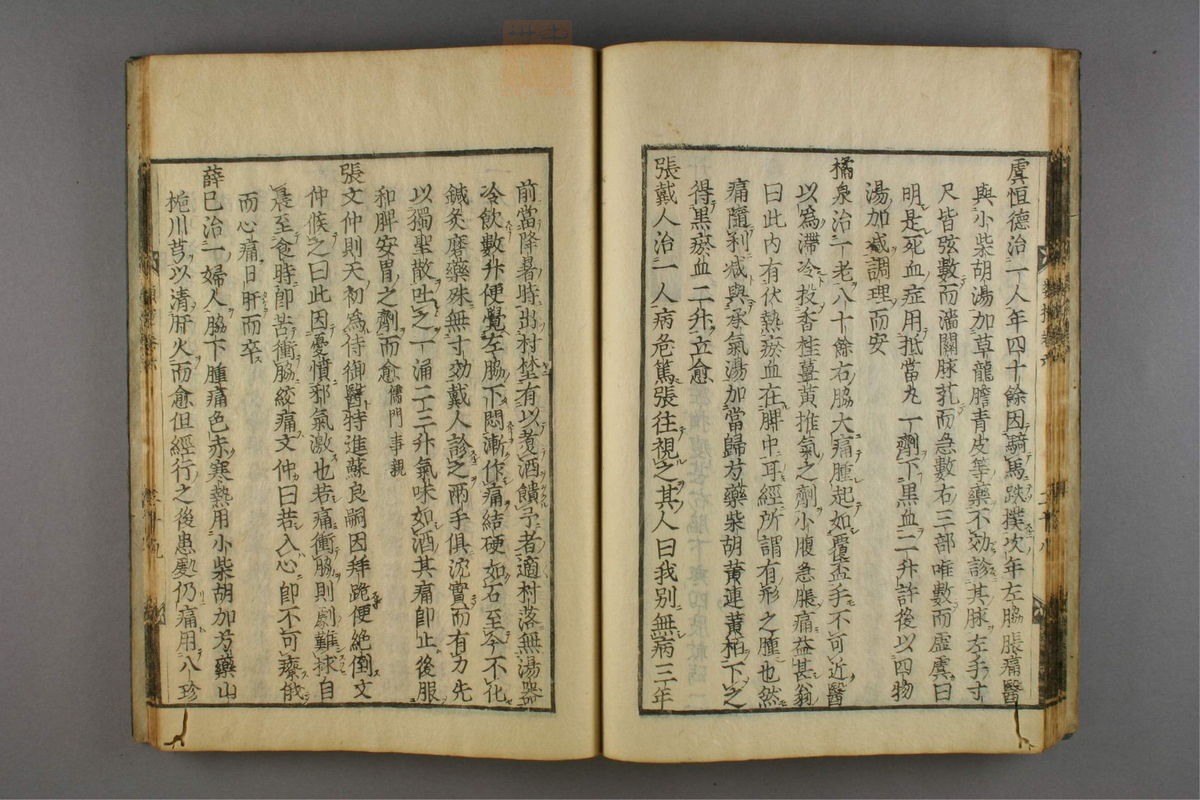 虞恒德治一人年四十餘因騎馬跌撲次年左脇脹痛醫
與小柴胡湯加草龍膽青皮等藥不効診其脉左手寸
尺皆弦數而濇關脉芤而急數右三部唯數而虛虞曰
明是死血症用抵當丸一劑下黑血二升許後以四物
湯加減調理而安
橘泉治一老八十餘右脇大痛腫起如覆盃手不可近醫
以為滯冷投香桂薑黃推氣之劑小腹急脹痛益甚翁
曰此内有伏熱瘀血在脾中耳經所謂有形之腫也然
痛隨利減與承氣湯加當歸芍藥柴胡黃連黃柏下之
得黑瘀血二升立愈
張戴人治一人病危篤張往視之其人曰我別無病三年
前當降暑時出村埜有以煮酒饋予者適村落無湯器
冷飲數升便覺左脇下悶漸作痛結硬如石至今不化
鍼灸磨藥殊無寸効戴人診之兩手俱沉實而有力先
以獨聖散吐之一涌二三升氣味如酒其痛即止後服
和脾安胃之劑而愈儒門事親
張文仲則天初為侍御醫特進蘇良嗣因拜跪便絶倒文
仲候之曰此因憂憤邪氣激也若痛衝脇則劇難救自
晨至食時即苦衝脇絞痛文仲曰若入心即不可療俄
而心痛日旰而卒
薛已治一婦人脇下腫痛色赤寒熱用小柴胡加芳藥山
梔川芎以清肝火而愈但經行之後患處仍痛用八珍